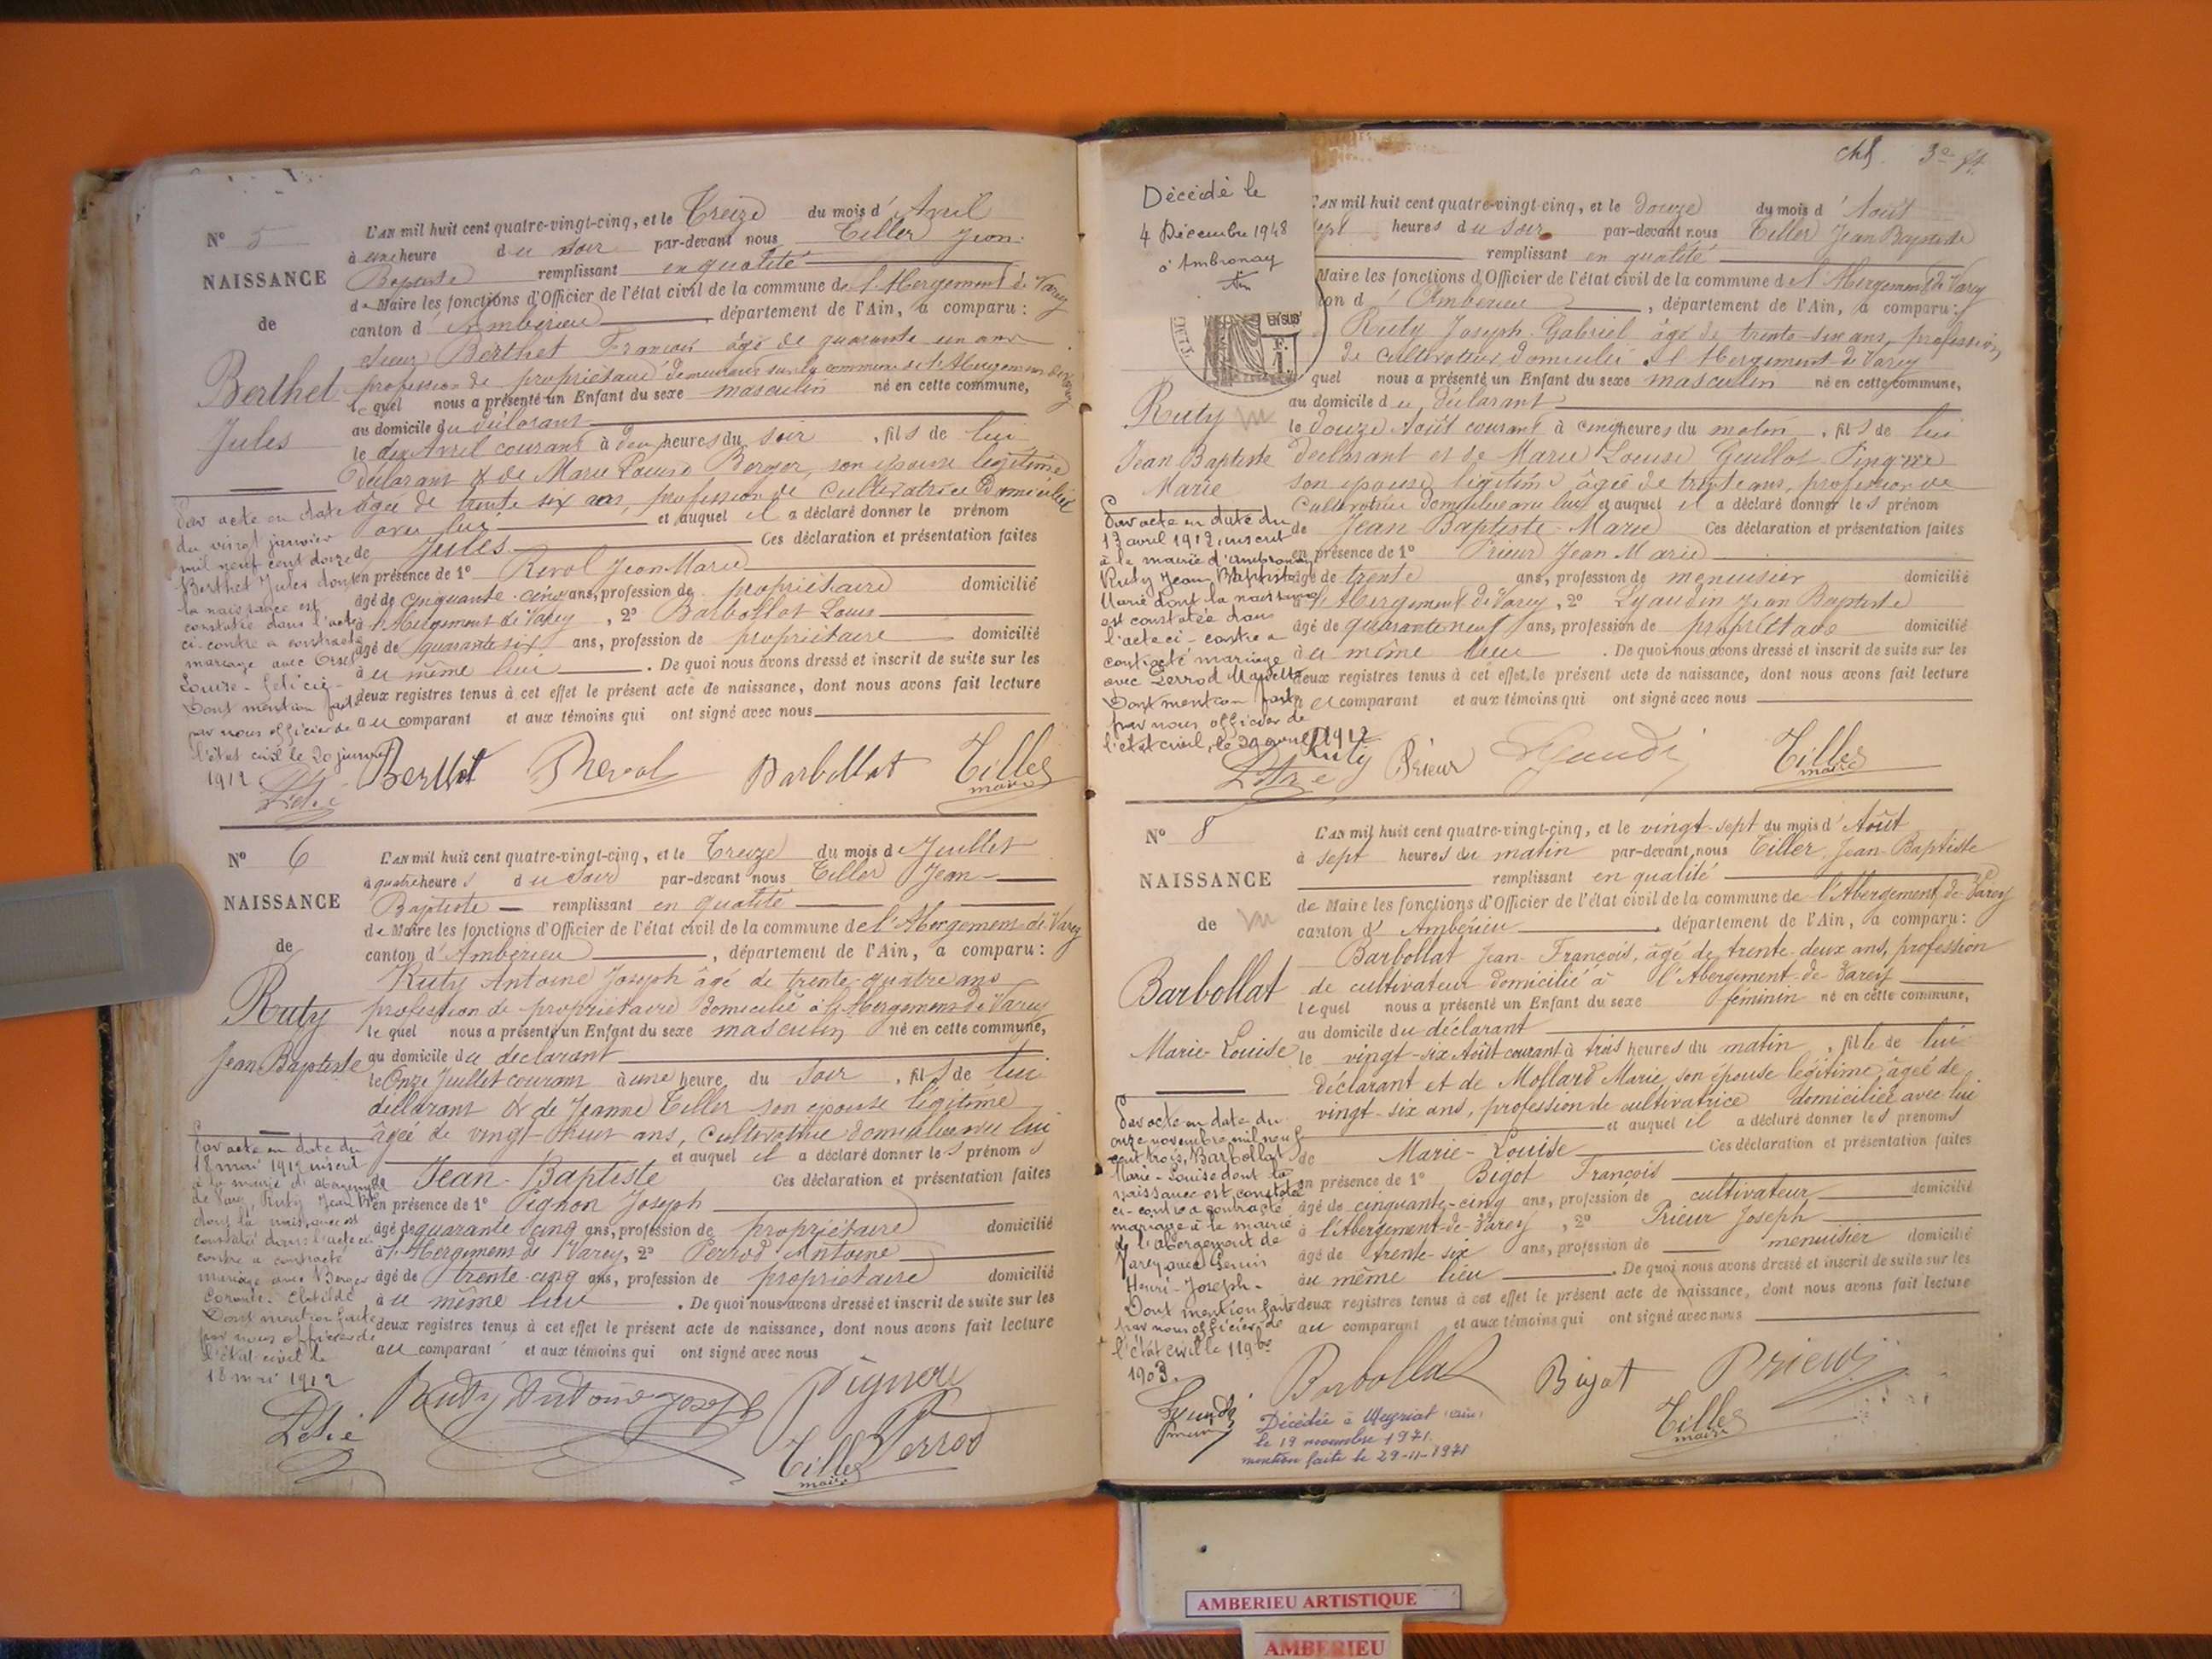 N° 5
NAISSANCE
de
Berthet
Jules
L'AN mil huit cent quatre-vingt-cinq, et le Treize du mois d' Avril
à une heure du soir par-devant nous Tiller Jean
Baptiste remplissant en qualité
de Maire les fonctions d'Officier de l'état civil de la commune de l'Abergement de Varey
canton d'Ambérieu, département de l'Ain, a comparu :
Sieur Berthet François âgé de quarante un ans
profession de propriétaire demeurant sur la commune de l'Abergement de Varey
lequel nous a présenté un Enfant du sexe masculin né en cette commune,
au domicile du déclarant
le dix Avril courant à deux heures du soir, fils de lui
déclarant & de Marie Louise Berger, son épouse légitime
âgée de trente six ans, profession de cultivatrice domiciliée
avec lui et auquel il a déclaré donner le prénom
de Jules Ces déclaration et présentation faites
en présence de 1° Revol Jean Marie
âgé de cinquante-cinq ans, profession de propriétaire domicilié
à l'Abergement de Varey, 2° Barbollat Louis
âgé de quarante six ans, profession de propriétaire domicilié
au même lieu. De quoi nous avons dressé et inscrit de suite sur les
deux registres tenus à cet effet le présent acte de naissance, dont nous avons fait lecture
au comparant et aux témoins qui ont signé avec nous
Par acte en date
du vingt janvier
mil neuf cent douze
Berthet Jules dont
la naissance est
constatée dans l'acte
ci-contre a contracté
mariage avec
Louise-Félicie
Dont mention faite
par nous officier de
l'état civil le 20 janvier
1912
Berthet Revol Barbollat Tiller
maire
N° 6
NAISSANCE
de
Ruty
Jean Baptiste
L'AN mil huit cent quatre-vingt-cinq, et le Treize du mois de Juillet
à quatre heures du soir par-devant nous Tiller Jean
Baptiste remplissant en qualité
de Maire les fonctions d'Officier de l'état civil de la commune de l'Abergement de Varey
canton d'Ambérieu, département de l'Ain, a comparu :
Ruty Antoine Joseph âgé de trente-quatre ans
profession de propriétaire domicilié à l'Abergement de Varey
lequel nous a présenté un Enfant du sexe masculin né en cette commune,
au domicile du déclarant
le Onze Juillet courant à une heure du soir, fils de lui
déclarant & de Jeanne Tiller son épouse légitime
âgée de vingt-huit ans, cultivatrice domiciliée avec lui
et auquel il a déclaré donner les prénoms
de Jean-Baptiste Ces déclaration et présentation faites
en présence de 1° Pignon Joseph
âgé de quarante cinq ans, profession de propriétaire domicilié
à l'Abergement de Varey, 2° Perrod Antoine
âgé de trente-cinq ans, profession de propriétaire domicilié
au même lieu. De quoi nous avons dressé et inscrit de suite sur les
deux registres tenus à cet effet le présent acte de naissance, dont nous avons fait lecture
au comparant et aux témoins qui ont signé avec nous
Par acte en date du
18 mai 1912 inscrit
à la mairie d'Abergement
de Varey, Ruty Jean Bte
dont la naissance est
constatée dans l'acte ci
contre a contracté
mariage avec Berger
Clotilde
Dont mention faite
par nous officier de
l'état civil le
18 mai 1912
Ruty Antoine Joseph Pignon
Tiller Perrod
maire
ch5. 3e
Décédé le
4 Décembre 1948
à Ambronay
EN SUS
Ruty
Jean Baptiste
Marie
L'AN mil huit cent quatre-vingt-cinq, et le douze du mois d' Août
sept heures du soir par-devant nous Tiller Jean Baptiste
remplissant en qualité
Maire les fonctions d'Officier de l'état civil de la commune de l'Abergement de Varey
ton d'Ambérieu, département de l'Ain, a comparu :
Ruty Joseph Gabriel âgé de trente-six ans, profession
de cultivateur domicilié à l'Abergement de Varey
quel nous a présenté un Enfant du sexe masculin né en cette commune,
au domicile du déclarant
le douze Août courant à cinq heures du matin, fils de lui
déclarant et de Marie Louise Guillot
son épouse légitime âgée de trente ans, profession de
cultivatrice domiciliée avec lui et auquel il a déclaré donner les prénom
de Jean Baptiste-Marie Ces déclaration et présentation faites
en présence de 1° Prieur Jean Marie
âgé de trente ans, profession de menuisier domicilié
à l'Abergement de Varey, 2° Lyaudin Jean Baptiste
âgé de quarante neuf ans, profession de propriétaire domicilié
au même lieu. De quoi nous avons dressé et inscrit de suite sur les
deux registres tenus à cet effet, le présent acte de naissance, dont nous avons fait lecture
au comparant et aux témoins qui ont signé avec nous
Par acte en date du
avril 1912, inscrit
à la mairie d'Ambronay
Ruty Jean Baptiste
Marie dont la naissance
est constatée dans
l'acte ci-contre a
contracté mariage
avec Perrod
Dont mention faite
par nous officier de
l'état civil, le avril 1912
Ruty Prieur Tiller
maire
N° 8
NAISSANCE
de
Barbollat
Marie-Louise
L'AN mil huit cent quatre-vingt-cinq, et le vingt-sept du mois d' Août
à sept heures du matin par-devant nous Tiller Jean-Baptiste
remplissant en qualité
de Maire les fonctions d'Officier de l'état civil de la commune de l'Abergement-de-Varey
canton d'Ambérieu, département de l'Ain, a comparu :
Barbollat Jean-François, âgé de trente-deux ans, profession
de cultivateur domicilié à l'Abergement-de-Varey
lequel nous a présenté un Enfant du sexe féminin né en cette commune,
au domicile du déclarant
le vingt-six Août courant à trois heures du matin, fille de lui
déclarant et de Mollard Marie, son épouse légitime, âgée de
vingt-six ans, profession de cultivatrice domiciliée avec lui
et auquel il a déclaré donner les prénoms
de Marie-Louise Ces déclaration et présentation faites
en présence de 1° Bigot François
âgé de cinquante-cinq ans, profession de cultivateur domicilié
à l'Abergement-de-Varey, 2° Prieur Joseph
âgé de trente-six ans, profession de menuisier domicilié
au même lieu. De quoi nous avons dressé et inscrit de suite sur les
deux registres tenus à cet effet le présent acte de naissance, dont nous avons fait lecture
au comparant et aux témoins qui ont signé avec nous
Par acte en date du
onze novembre mil neuf
cent trois, Barbollat
Marie-Louise dont la
naissance est constatée
ci-contre a contracté
mariage à la mairie
de l'Abergement de
Varey avec
Henri-Joseph-
Dont mention faite
par nous officier de
l'état civil le 11 9bre
1903.
Barbollat Bigot Prieur
Tiller
maire
Décédée à Meyriat (Ain)
le 19 novembre 1971.
mention faite le 29-11-1971
AMBERIEU ARTISTIQUE
AMBERIEU